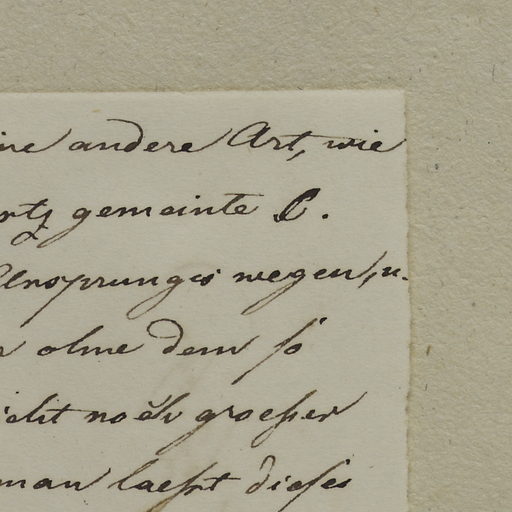 ine andere Art, wie
rtz gemeinte C.
Ursprunges wegen, u.
ohne dem ſo
icht noch groeſser
man laeſst dieſes